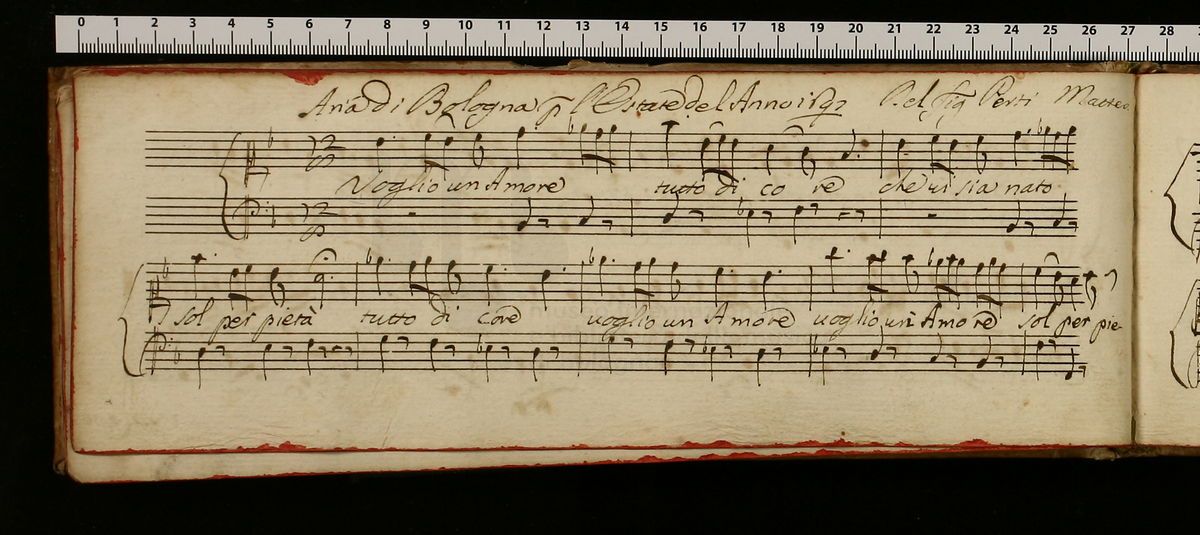 0 1 2 3 4 5 6 7 8 9 10 11 12 13 14 15 16 17 18 19 20 21 22 23 24 25 26 27 28
Aria di Bologna p l'Estate del Anno Del Sig Perti
Voglio un Amore tutto di core che ui sia nato
sol per pietà tutto di core uoglio un Amore uoglio un Amore sol per pie-